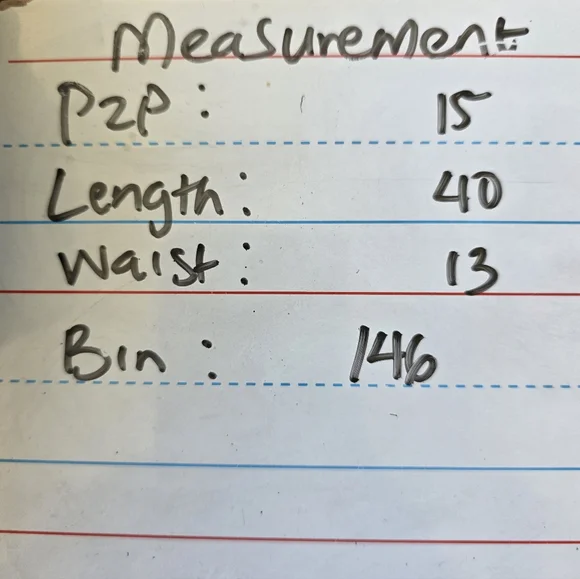 Measurement
P2P: 15
Length: 40
Waist: 13
Bin: 146